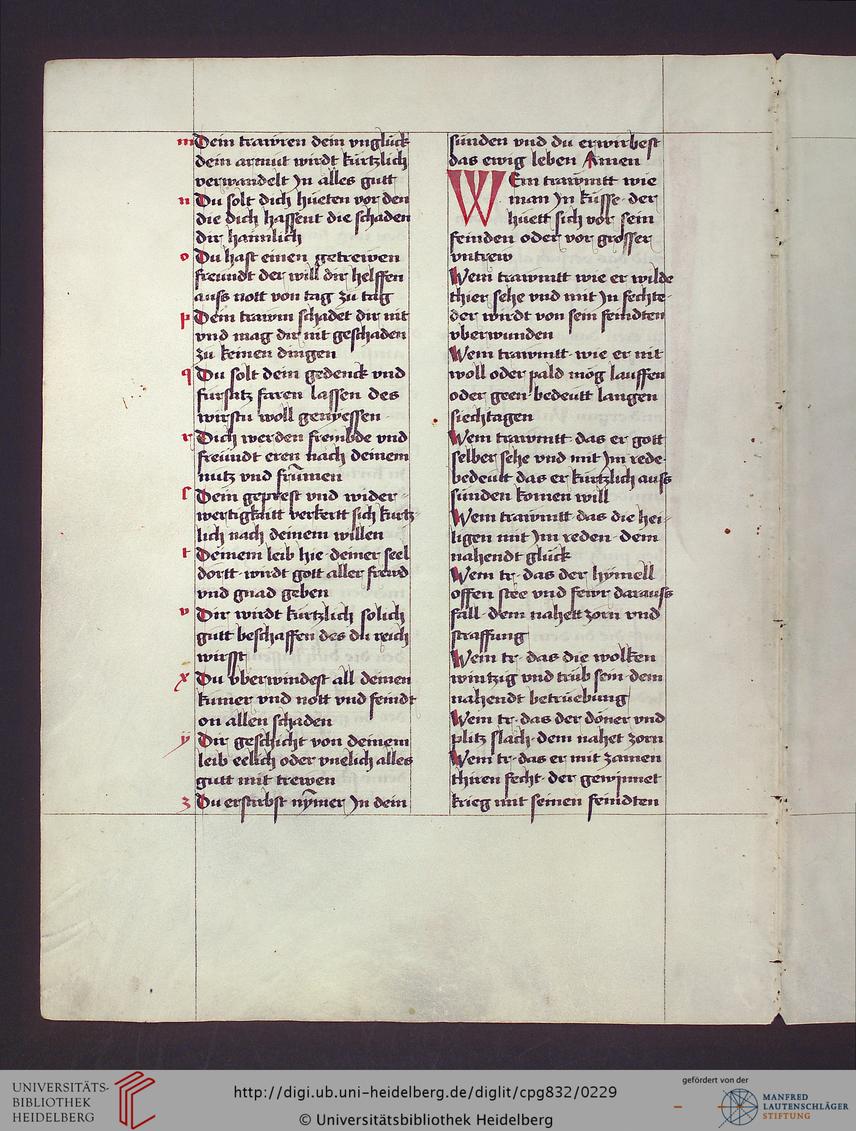 m Dein trawren dein vnglück
dein armut wirdt kürtzlich
verwandelt Jn alles gutt
n Du solt dich hüeten vor den
die dich hassent die schaden
dir haimlich
o Du hast einen getrewen
freundt der will dir helffen
auss nott von tag zu tag
p Dein trawm schadet dir nit
vnd mag dir nit geschaden
zu keinen dingen
q Du solt dein gedenck vnd
fürsatz faren lassen des
wirstu woll genyessen
r Dich werden frembde vnd
freündt eren nach deinem
nutz vnd frumen
s Dein geprest vnd wider-
wertigkaitt verkertt sich kurtz-
lich nach deinem willen
t Deinem leib hie deiner seel
dortt wirdt gott aller frewd
vnd gnad geben
v Dir wirdt kürtzlich solich
gutt beschaffen des du reich
wirsst
x Du vberwindest all deinen
kumer vnd nott vnd feindt
on allen schaden
y Dir geschicht von deinem
leib eelich oder vnelich alles
gutt mit trewen
z Du erstirbst nymer Jn dein
sünden vnd du erwirbest
das ewig leben Amen
WEm trawmtt wie
man Jn küsse der
hüett sich vor sein
feinden oder vor grosser
vntrew
Wem trawmtt wie er wilde
thier sehe vnd mit Jn fechte
der wirdt von sein feindten
vberwunden
Wem trawmtt wie er nit
woll oder pald mög lauffen
oder geen bedeütt langen
siechtagen
Wem trawmtt das er gott
selber sehe vnd mit Jm rede
bedeütt das er kürtzlich auss
sünden komen will
Wem trawmtt das die hei-
ligen mit Jm reden dem
nahendt glück
Wem tr. das der hymell
offen stee vnd fewr darauss
fall dem nahett zorn vnd
straffung
Wem tr. das die wolken
wintzig vnd trüb sein dem
nahendt betrüebung
Wem tr. das der döner vnd
plitz slach dem nahet zorn
Wem tr. das er mit zamen
thiren fecht der gewinnet
krieg mit seinen feindten
UNIVERSITÄTS-
BIBLIOTHEK
HEIDELBERG
http://digi.ub.uni-heidelberg.de/diglit/cpg832/0229
© Universitätsbibliothek Heidelberg
gefördert von der
MANFRED
LAUTENSCHLÄGER
STIFTUNG